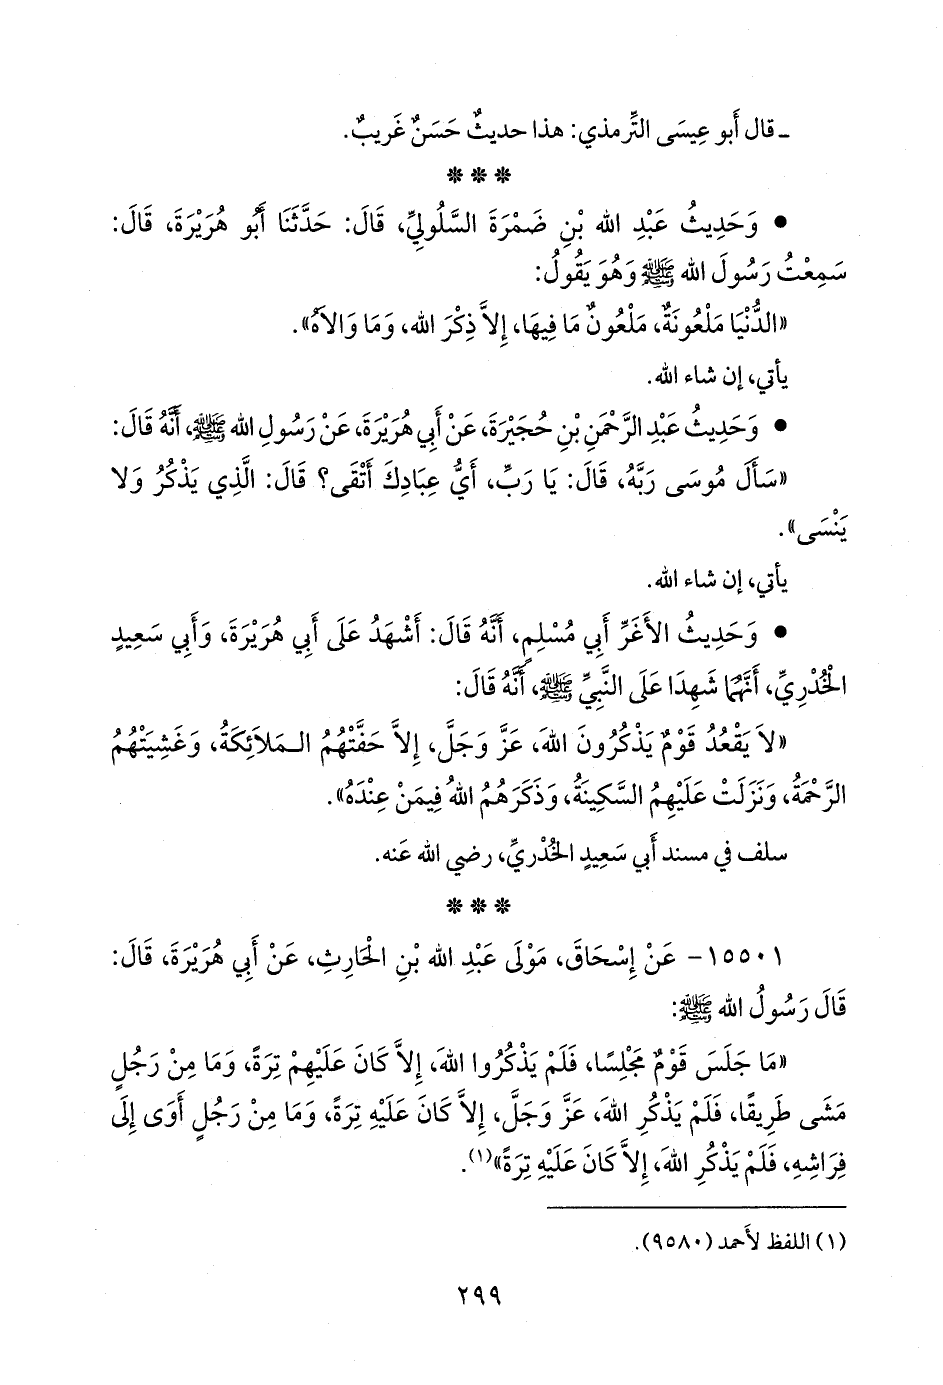 ـ قال أَبو عِيسَى التِّرمذي: هذا حديثٌ حَسَنٌ غَريبٌ.
* * *
• وَحَدِيثُ عَبْدِ الله بْنِ ضَمْرَةَ السَّلُوليِّ، قَالَ: حَدَّثَنَا أَبُو هُرَيْرَةَ، قَالَ:
سَمِعْتُ رَسُولَ الله ﷺ وَهُوَ يَقُولُ:
«الدُّنْيَا مَلْعُونَةٌ، مَلْعُونٌ مَا فِيهَا، إِلاَّ ذِكْرَ الله، وَمَا وَالاَهُ».
يأتي، إن شاء الله.
• وَحَدِيثُ عَبْدِ الرَّحْمَنِ بْنِ حُجَيْرَةَ، عَنْ أَبِي هُرَيْرَةَ، عَنْ رَسُولِ الله ﷺ، أَنَّهُ قَالَ:
«سَأَلَ مُوسَى رَبَّهُ، قَالَ: يَا رَبِّ، أَيُّ عِبَادِكَ أَتْقَى؟ قَالَ: الَّذِي يَذْكُرُ وَلا
يَنْسَى».
يأتي، إن شاء الله.
• وَحَدِيثُ الأَغَرِّ أَبِي مُسْلِمٍ، أَنَّهُ قَالَ: أَشْهَدُ عَلَى أَبِي هُرَيْرَةَ، وَأَبِي سَعِيدٍ
الْخُدْرِيِّ، أَنَّهُمَا شَهِدَا عَلَى النَّبِيِّ ﷺ، أَنَّهُ قَالَ:
«لاَ يَقْعُدُ قَوْمٌ يَذْكُرُونَ اللهَ، عَزَّ وَجَلَّ، إِلاَّ حَفَّتْهُمُ الـمَلاَئِكَةُ، وَغَشِيَتْهُمُ
الرَّحْمَةُ، وَنَزَلَتْ عَلَيْهِمُ السَّكِينَةُ، وَذَكَرَهُمُ اللهُ فِيمَنْ عِنْدَهُ».
سلف في مسند أَبي سَعِيدٍ الخُدْريِّ، رضي الله عَنه.
* * *
١٥٥٠١- عَنْ إِسْحَاقَ، مَوْلَى عَبْدِ الله بْنِ الْحَارِثِ، عَنْ أَبِي هُرَيْرَةَ، قَالَ:
قَالَ رَسُولُ الله ﷺ:
«مَا جَلَسَ قَوْمٌ مَجْلِسًا، فَلَمْ يَذْكُرُوا اللهَ، إِلاَّ كَانَ عَلَيْهِمْ تِرَةً، وَمَا مِنْ رَجُلٍ
مَشَى طَرِيقًا، فَلَمْ يَذْكُرِ اللهَ، عَزَّ وَجَلَّ، إِلاَّ كَانَ عَلَيْهِ تِرَةً، وَمَا مِنْ رَجُلٍ أَوَى إِلَى
فِرَاشِهِ، فَلَمْ يَذْكُرِ اللهَ، إِلاَّ كَانَ عَلَيْهِ تِرَةً»(١).
(١) اللفظ لأَحمد (٩٥٨٠).
٢٩٩